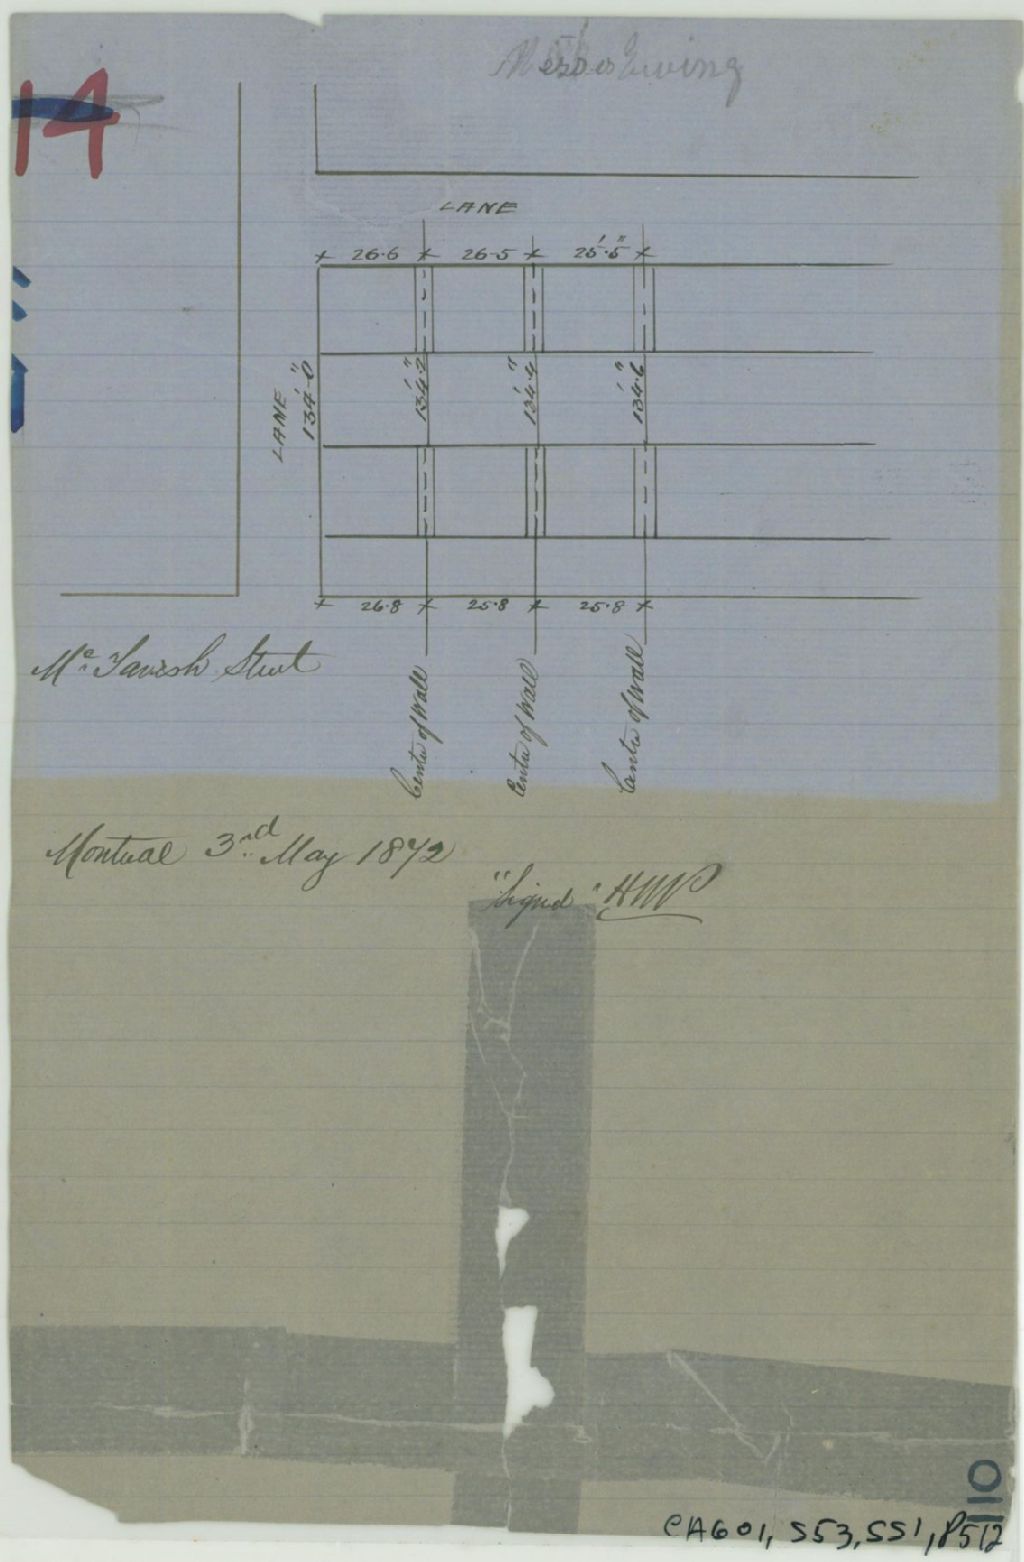 14
LANE
26.6 26.5 25'.5"
LANE
134'.0"
134'.2"
134'.4"
134'.6"
26.8 25.8 25.8
Mc Tavish Street
Centre of Wall
Centre of Wall
Centre of Wall
Montreal 3rd May 1872
"Signed" HWP
110
CA601, S53, SS1, P512